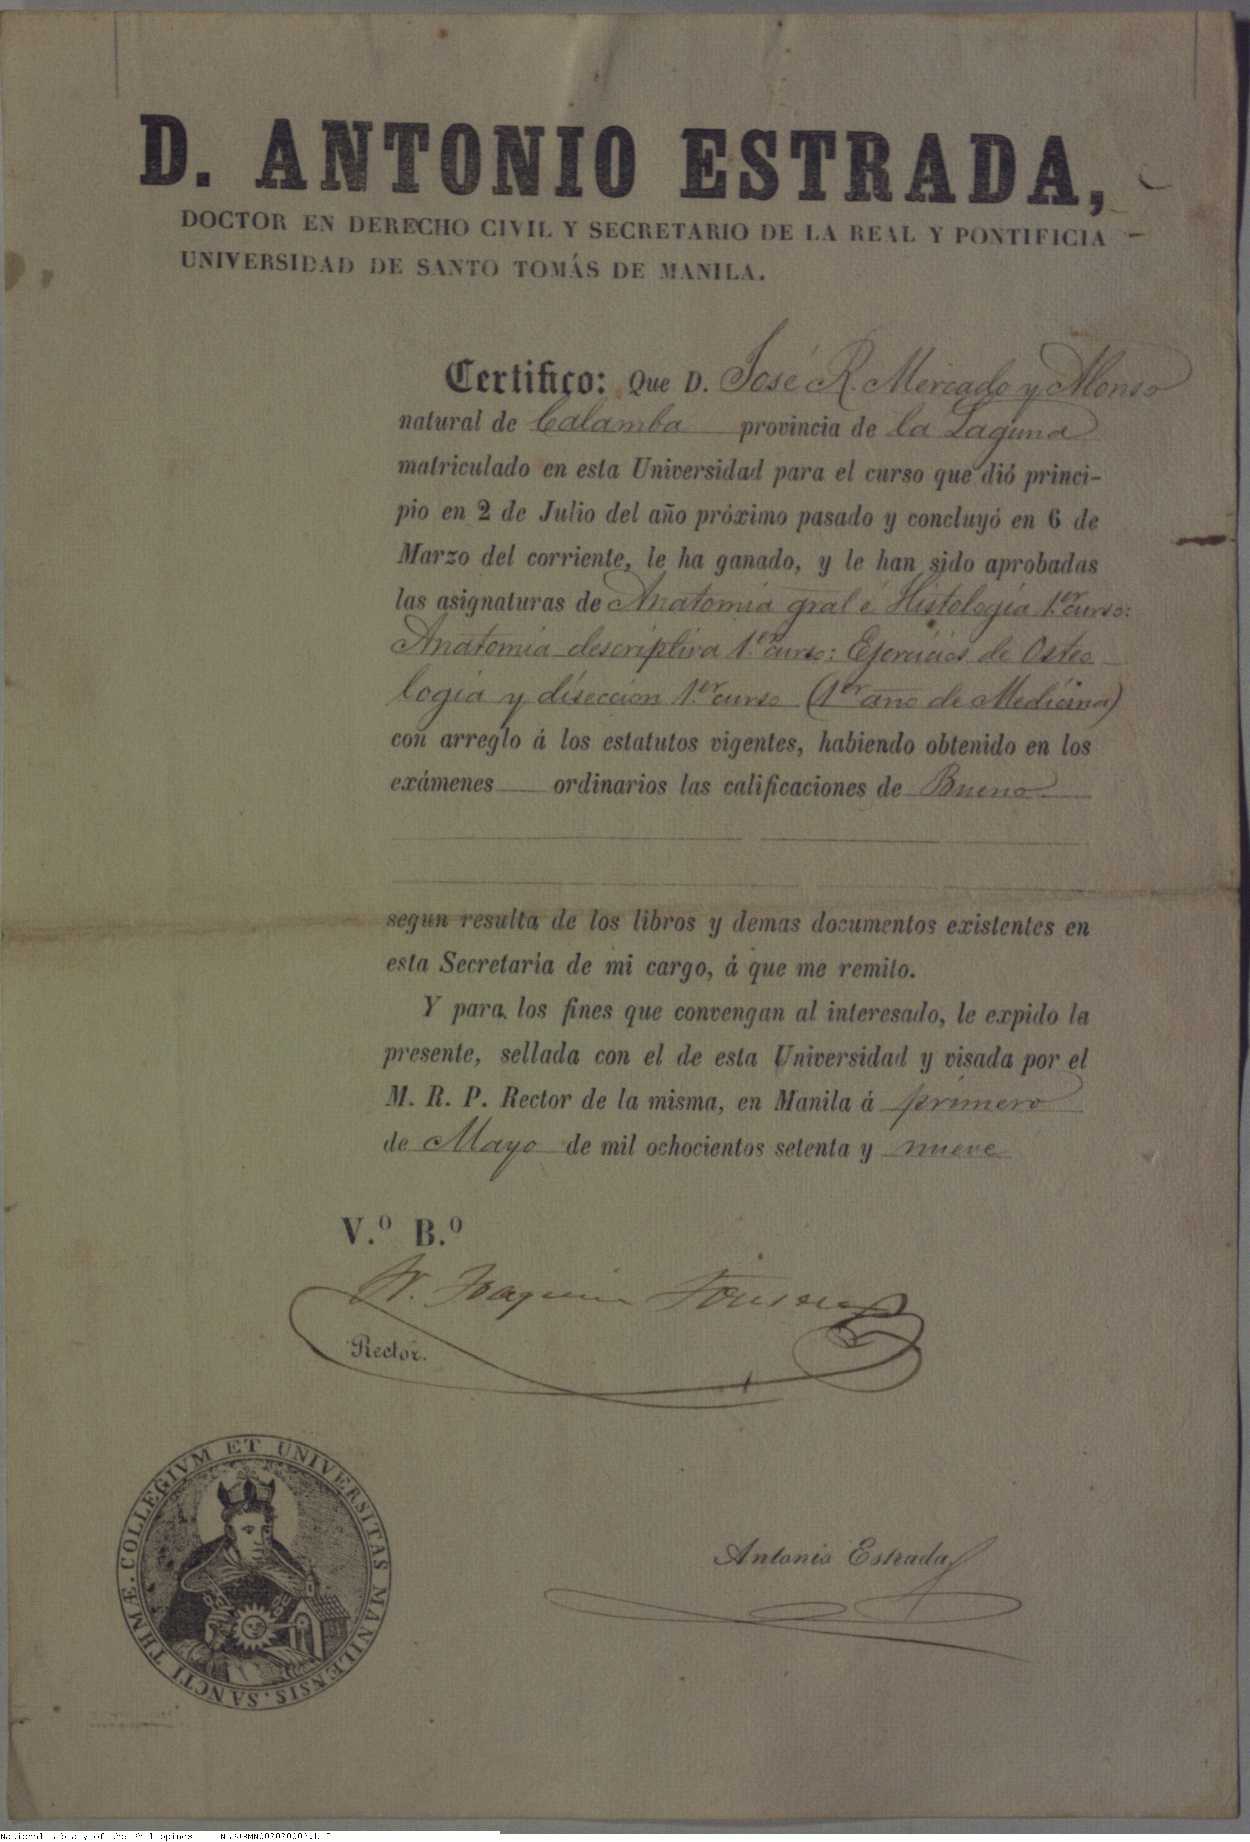 D. ANTONIO ESTRADA,
DOCTOR EN DERECHO CIVIL Y SECRETARIO DE LA REAL Y PONTIFICIA
UNIVERSIDAD DE SANTO TOMÁS DE MANILA.
Certifico: Que D. José R. Mercado y Alonso
natural de Calamba provincia de la Laguna
matriculado en esta Universidad para el curso que dió princi-
pio en 2 de Julio del año próximo pasado y concluyó en 6 de
Marzo del corriente, le ha ganado, y le han sido aprobadas
las asignaturas de Anatomia gral é Histología 1.er curso:
Anatomia descriptiva 1.er curso: Ejercicios de Osteo
logia y diseccion 1.er curso (1er año de Medicina)
con arreglo á los estatutos vigentes, habiendo obtenido en los
exámenes ordinarios las calificaciones de Bueno
segun resulta de los libros y demas documentos existentes en
esta Secretaría de mi cargo, á que me remito.
Y para los fines que convengan al interesado, le expido la
presente, sellada con el de esta Universidad y visada por el
M. R. P. Rector de la misma, en Manila á primero
de Mayo de mil ochocientos setenta y nueve
V.º B.º
Fr. Joaquin Fonseca
Rector.
SANCTI THMÆ. COLLEGIVM ET UNIVERSITAS MANILENSIS.
Antonio Estrada
National Library of the Philippines